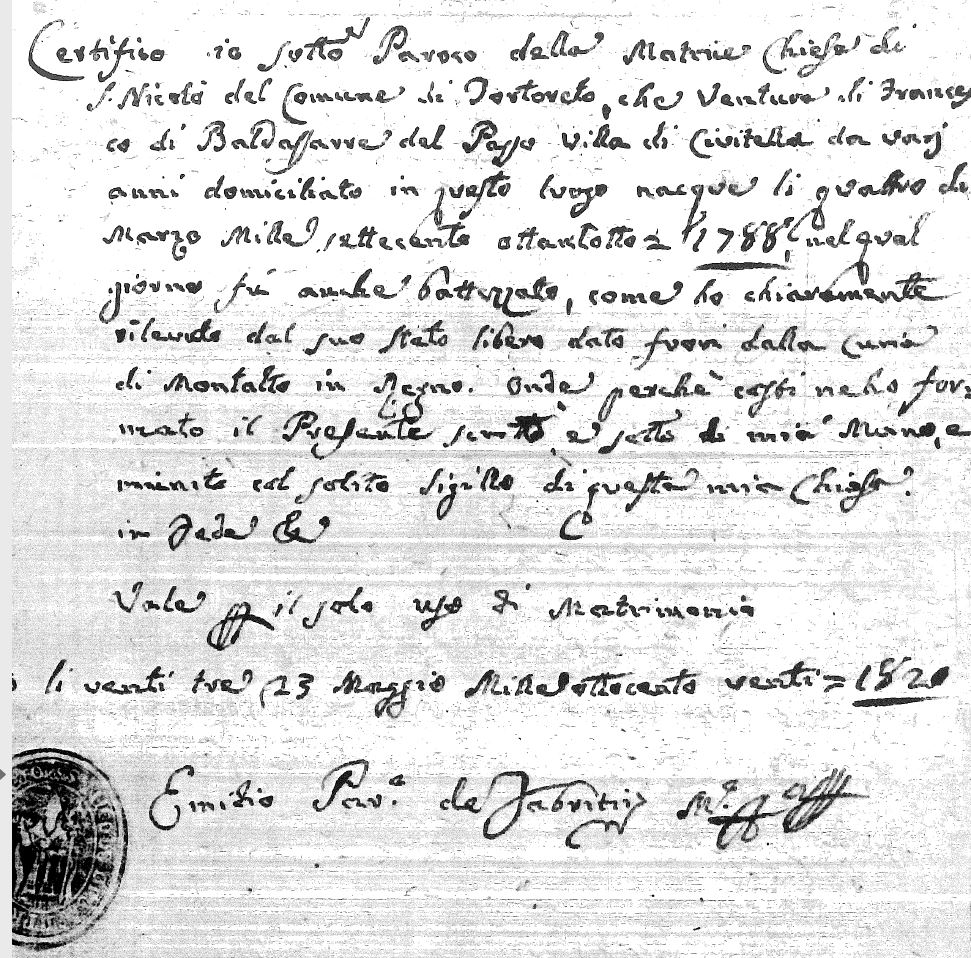 Certifico io sotto Paroco della Matrice Chiesa di
S. Nicolò del Comune di Tortoreto, che Ventura di Frances
co di Baldassarre del Passo Villa di Civitella da varj
anni domiciliato in questo luogo nacque li quattro di
Marzo Mille settecento ottantotto = 1788, nel qual
giorno fù anche battezzato, come ho chiaramente
rilevato dal suo stato libero dato fuori dalla Curia
di Montalto in Regno. Onde perchè costi ne ho for
mato il Presente scritto, e sotto di mia Mano, e
munito col solito sigillo di questa mia Chiesa.
in Fede &
Vale il solo uso di Matrimonio
li venti tre 23 Maggio Mille ottocento venti = 1820
Emidio Par.º de Fabritiis